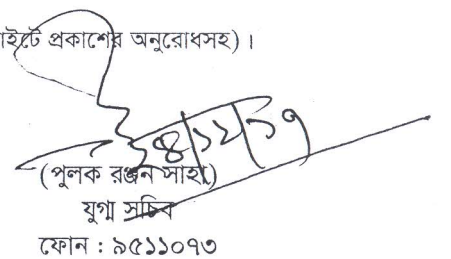 াইটে প্রকাশের অনুরোধসহ)।
(পুলক রঞ্জন সাহা)
যুগ্ম সচিব
ফোন : ৯৫১১০৭৩